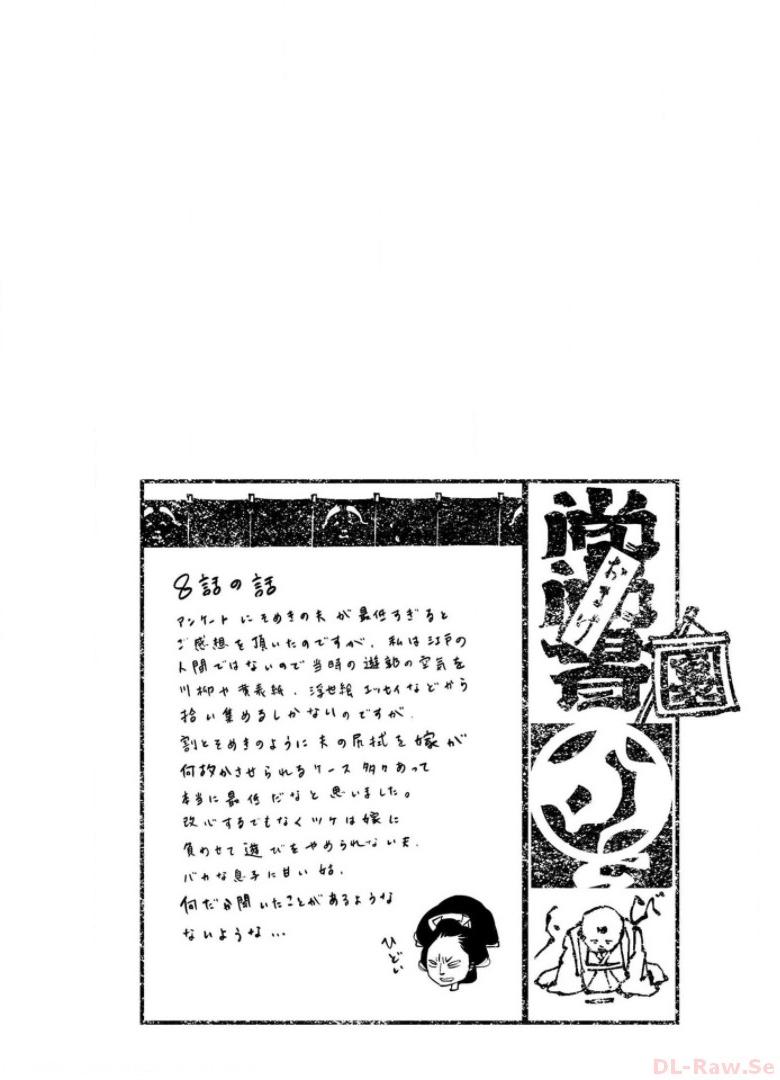 8話の話
アンケートにそめきの夫が最低すぎると
ご感想を頂いたのですが、私は江戸の
人間ではないので当時の遊郭の空気を
川柳や黄表紙、浮世絵エッセイなどから
拾い集めるしかないのですが、
割とそめきのように夫の尻拭を嫁が
何故かさせられるケース多々あって
本当に最低だなと思いました。
改心するでもなくツケは嫁に
負わせて遊びをやめられない夫、
バカな息子に甘い姑、
何だか聞いたことがあるような
ないような…
ひどい
おまけ
書
DL-Raw.Se